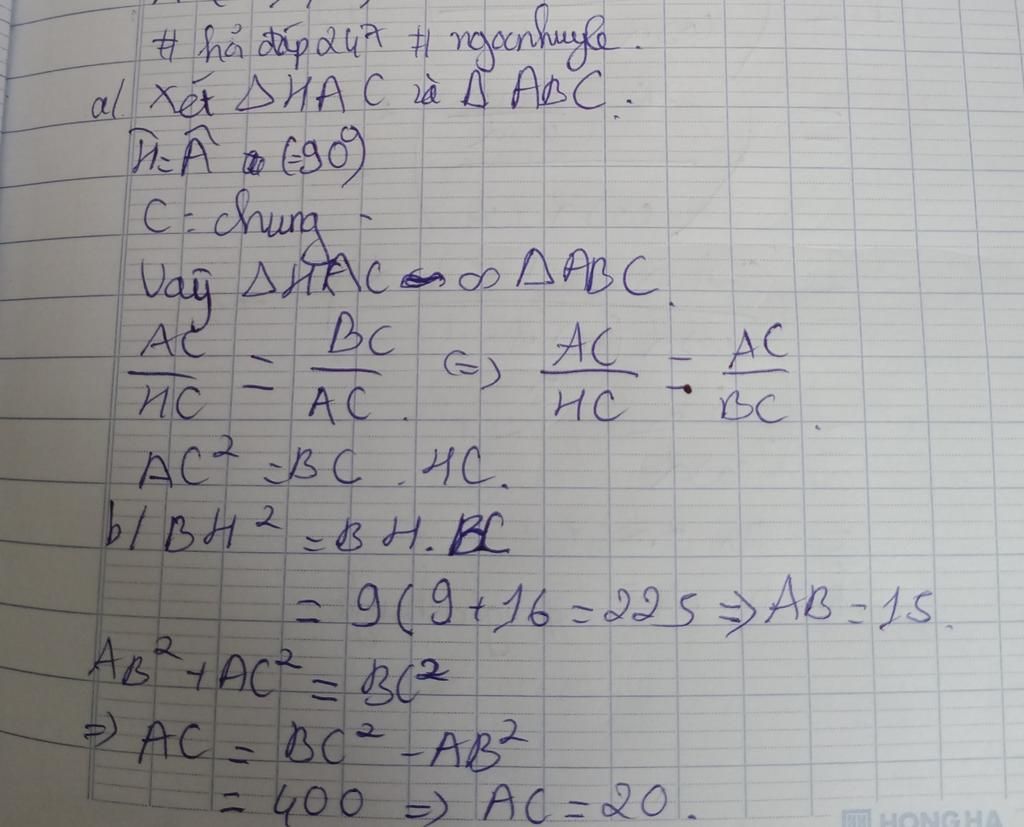 # hỏi đáp 247 # ngocnhuye.
a/ Xét ΔHAC và Δ ABC.
Ĥ = Â (=90°)
C = chung -
Vaỹ ΔHAC ∽ ΔABC.
AC/HC = BC/AC. (=) AC/HC = AC/BC.
AC² = BC . HC.
b/ BH² = BH. BC
= 9 (9+16 = 225 => AB = 15.
AB² + AC² = BC²
=> AC = BC² - AB²
= 400 => AC = 20.
HONG HA